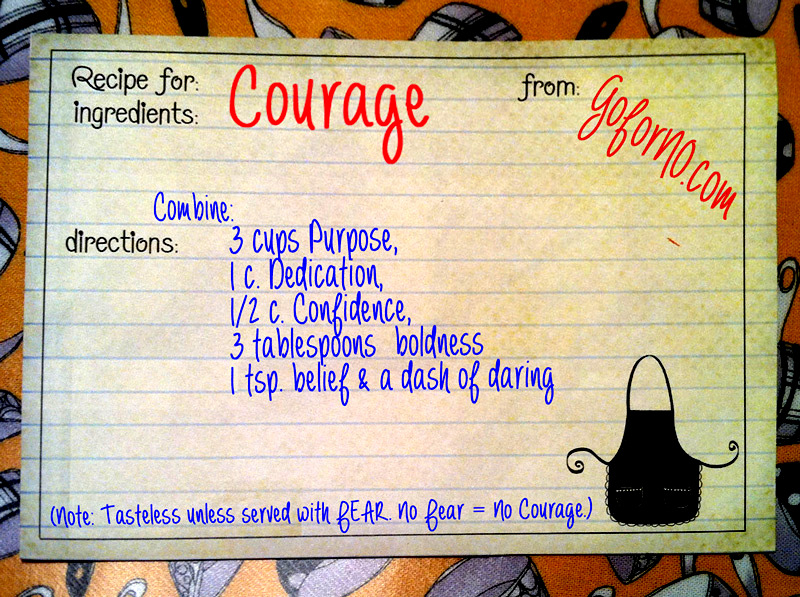 Recipe for: Courage from: GoforNO.com
ingredients:
Combine:
directions: 3 cups Purpose,
1 c. Dedication,
1/2 c. Confidence,
3 tablespoons boldness
1 tsp. belief & a dash of daring
(note: Tasteless unless served with fEAR. no fear = no Courage.)